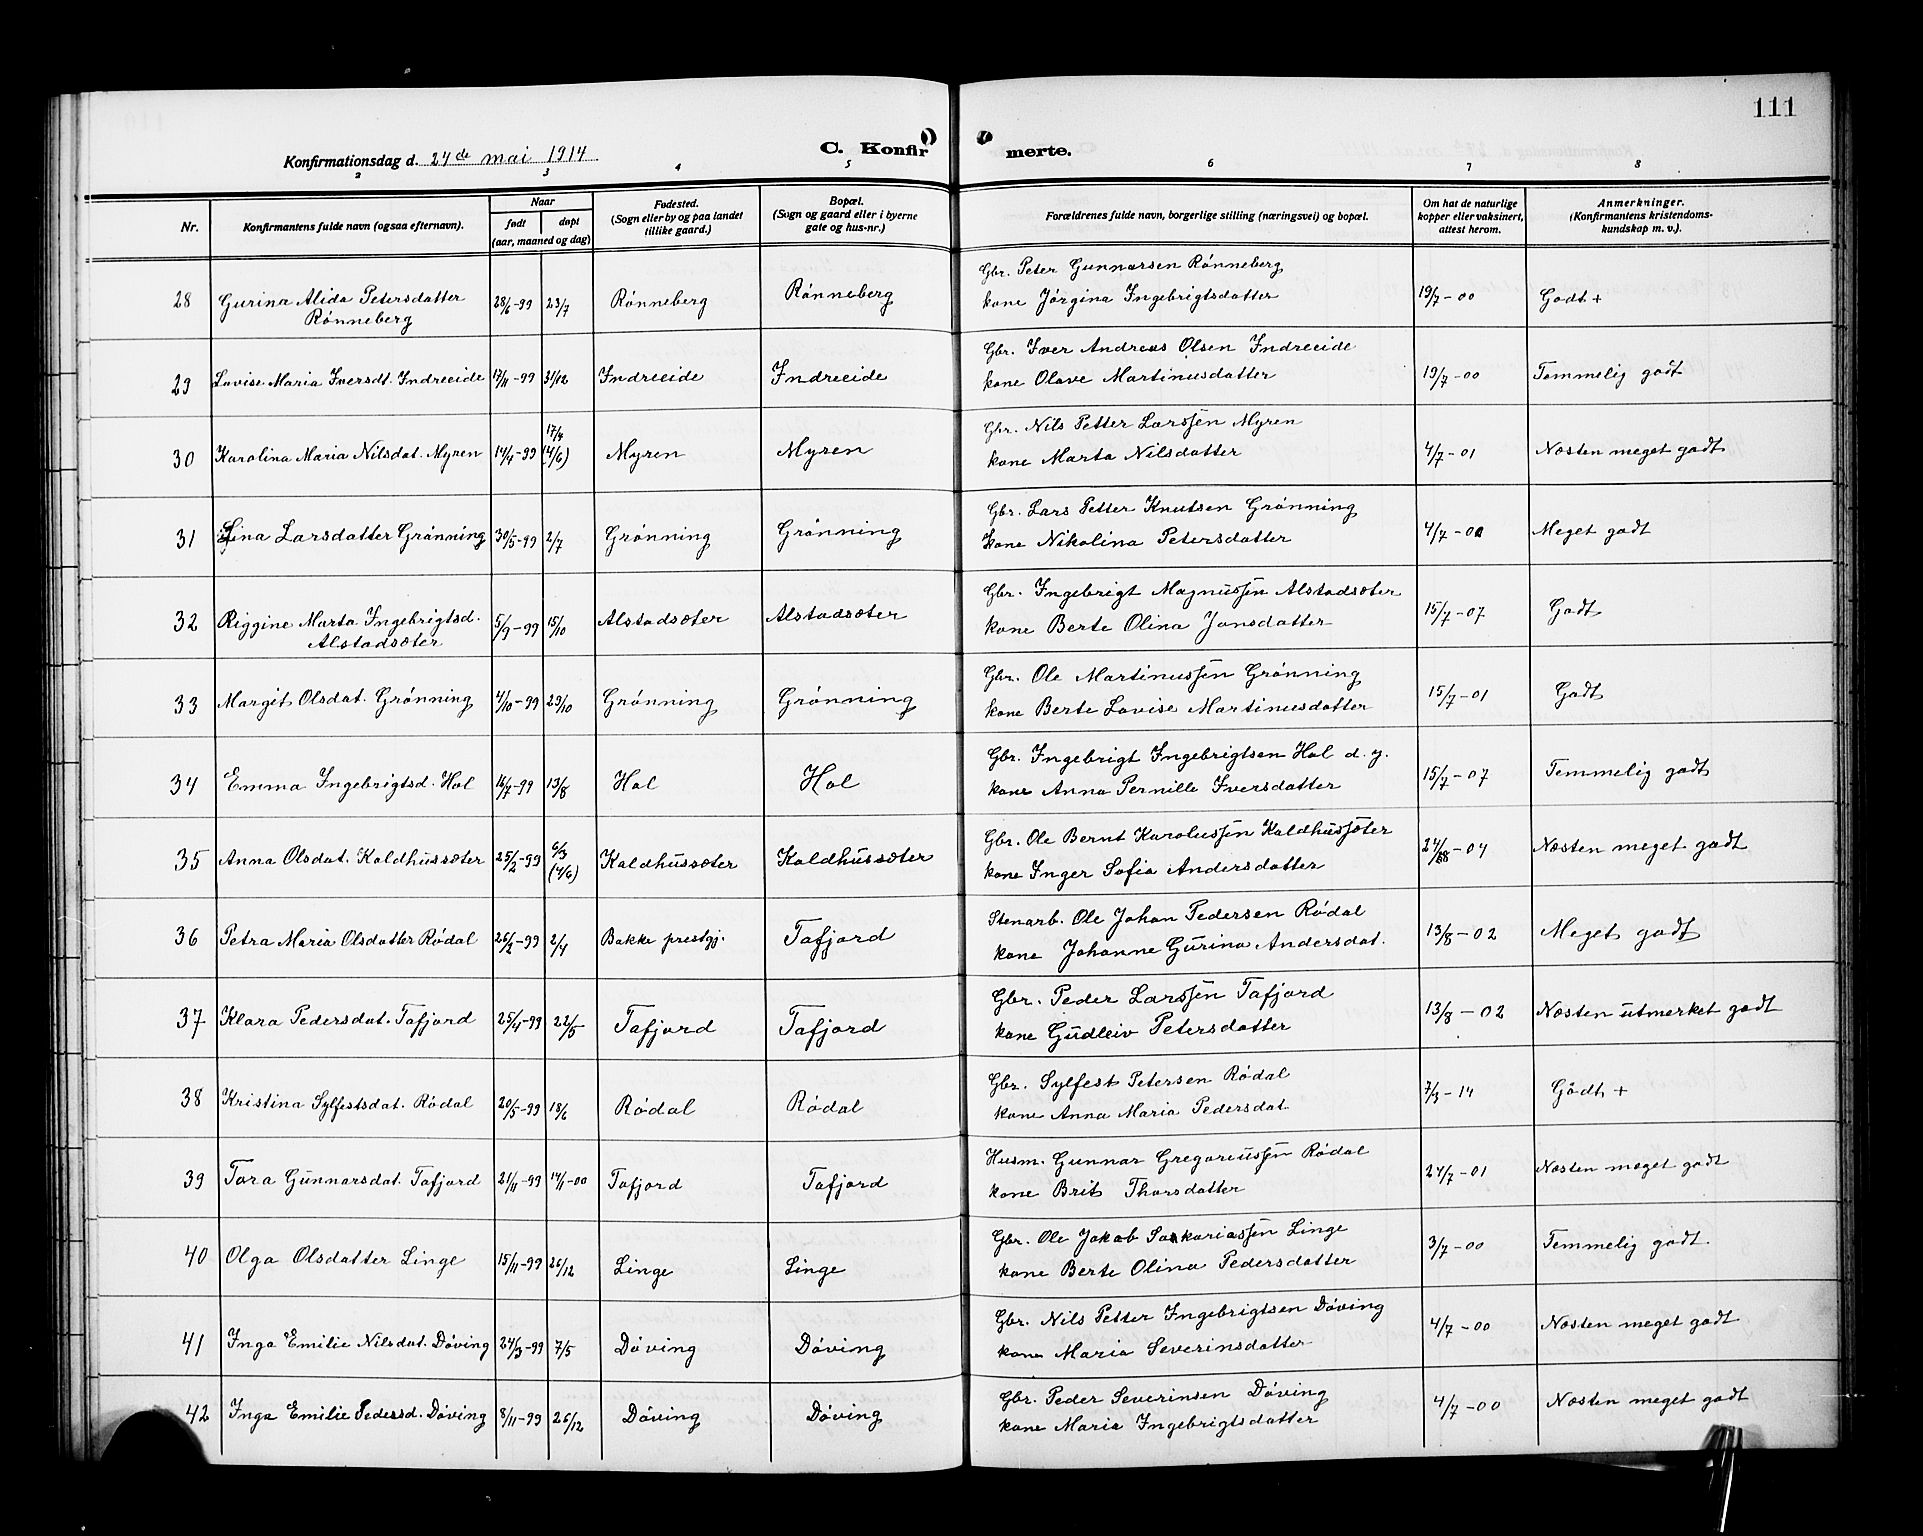 111
Konfirmationsdag d. 24de mai 1914
C. Konfir merte.
2 3 4 5 6 7 8
Nr. Konfirmantens fulde navn (ogsaa efternavn). Naar født døpt (aar, maaned og dag) Fødested. (Sogn eller by og paa landet tillike gaard.) Bopæl. (Sogn og gaard eller i byerne gate og hus-nr.) Forældrenes fulde navn, borgerlige stilling (næringsvei) og bopæl. Om hat de naturlige kopper eller vaksinert, attest herom. Anmerkninger. (Konfirmantens kristendoms-kundskap m. v.).
28 Gurina Alida Petersdatter Rønneberg 28/6-99 23/7 Rønneberg Rønneberg Gbr. Peter Gunnarsen Rønneberg
kone Jørgina Ingebrigtsdatter 19/7-00 Godt +
29 Lovise Maria Iversdt. Indreeide 17/11-99 31/12 Indreeide Indreeide Gbr. Iver Andreas Olsen Indreeide
kone Olave Martinusdatter 19/7-00 Temmelig godt
30 Karolina Maria Nilsdat. Myren 14/4-99 17/4 (4/6) Myren Myren Gbr. Nils Petter Larssen Myren
kone Marta Nilsdatter 4/7-01 Næsten meget godt
31 Lina Larsdatter Grønning 30/5-99 2/7 Grønning Grønning Gbr. Lars Petter Knutsen Grønning
kone Nikolina Petersdatter 4/7-00 Meget godt
32 Riggine Marta Ingebrigtsd. Alstadsæter 5/9-99 15/10 Alstadsæter Alstadsæter Gbr. Ingebrigt Magnussen Alstadsæter
kone Berte Olina Jonsdatter 15/7-07 Godt
33 Margit Olsdat. Grønning 4/10-99 29/10 Grønning Grønning Gbr. Ole Martinussen Grønning
kone Berte Lovise Martinusdatter 15/7-01 Godt
34 Emma Ingebrigtsd. Hol 16/7-99 13/8 Hol Hol Gbr. Ingebrigt Ingebrigtsen Hol d. y.
kone Anna Pernille Iversdatter 15/7-07 Temmelig godt
35 Anna Olsdat. Kaldhussæter 25/2-99 6/3 (4/6) Kaldhussæter Kaldhussæter Gbr. Ole Bernt Karolussen Kaldhussæter
kone Inger Sofia Andersdatter 24/8-04 Næsten meget godt
36 Petra Maria Olsdatter Rødal 26/2-99 2/4 Bakke prestgj. Tafjord Stenarb. Ole Johan Pedersen Rødal
kone Johanne Gurina Andersdat. 13/8-02 Meget godt
37 Klara Pedersdat. Tafjord 25/4-99 22/5 Tafjord Tafjord Gbr. Peder Larssen Tafjord
kone Gudleiv Petersdatter 13/8-02 Næsten utmerket godt
38 Kristina Sylfestsdat. Rødal 20/5-99 18/6 Rødal Rødal Gbr. Sylfest Petersen Rødal
kone Anna Maria Pedersdat. 7/3-14 Godt +
39 Tora Gunnarsdat. Tafjord 21/11-99 14/1-00 Tafjord Tafjord Husm. Gunnar Gregoriussen Rødal
kone Brit Thorsdatter 24/7-01 Næsten meget godt
40 Olga Olsdatter Linge 15/11-99 26/12 Linge Linge Gbr. Ole Jakob Sakariassen Linge
kone Berte Olina Pedersdatter 3/7-00 Temmelig godt.
41 Inga Emilie Nilsdat. Døving 24/3-99 7/5 Døving Døving Gbr. Nils Petter Ingebrigtsen Døving
kone Maria Severinsdatter 4/7-00 Næsten meget godt
42 Inga Emilie Pedersd. Døving 8/11-99 26/12 Døving Døving Gbr. Peder Severinsen Døving
kone Maria Ingebrigtsdatter 4/7-00 Næsten meget godt